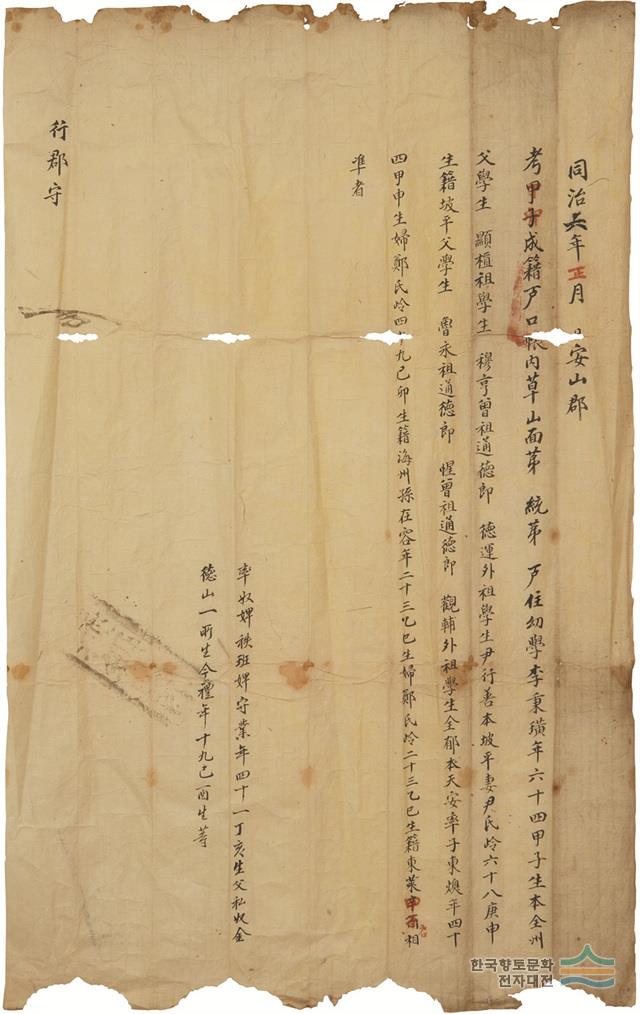 同治六年正月 日安山郡
考甲子成籍戶口帳內草山面苐 統苐 戶住幼學李秉璜年六十四甲子生本全州
父學生 顯樍祖學生 穆亨曾祖通德郎 德運外祖學生尹行善本坡平妻尹氏岭六十八庚申
生籍坡平父學生 魯永祖通德郎 惺曾祖通德郎 觀輔外祖學生全郁本天安率子東煥年四十
四甲申生婦鄭氏岭四十九己卯生籍海州孫在容年二十三乙巳生婦鄭氏岭二十三乙巳生籍東萊 相
準者
率奴婢秩班婢守業年四十一丁亥生父私奴金
德山一所生今禮年十九己酉生等
行郡守
한국향토문화
전자대전